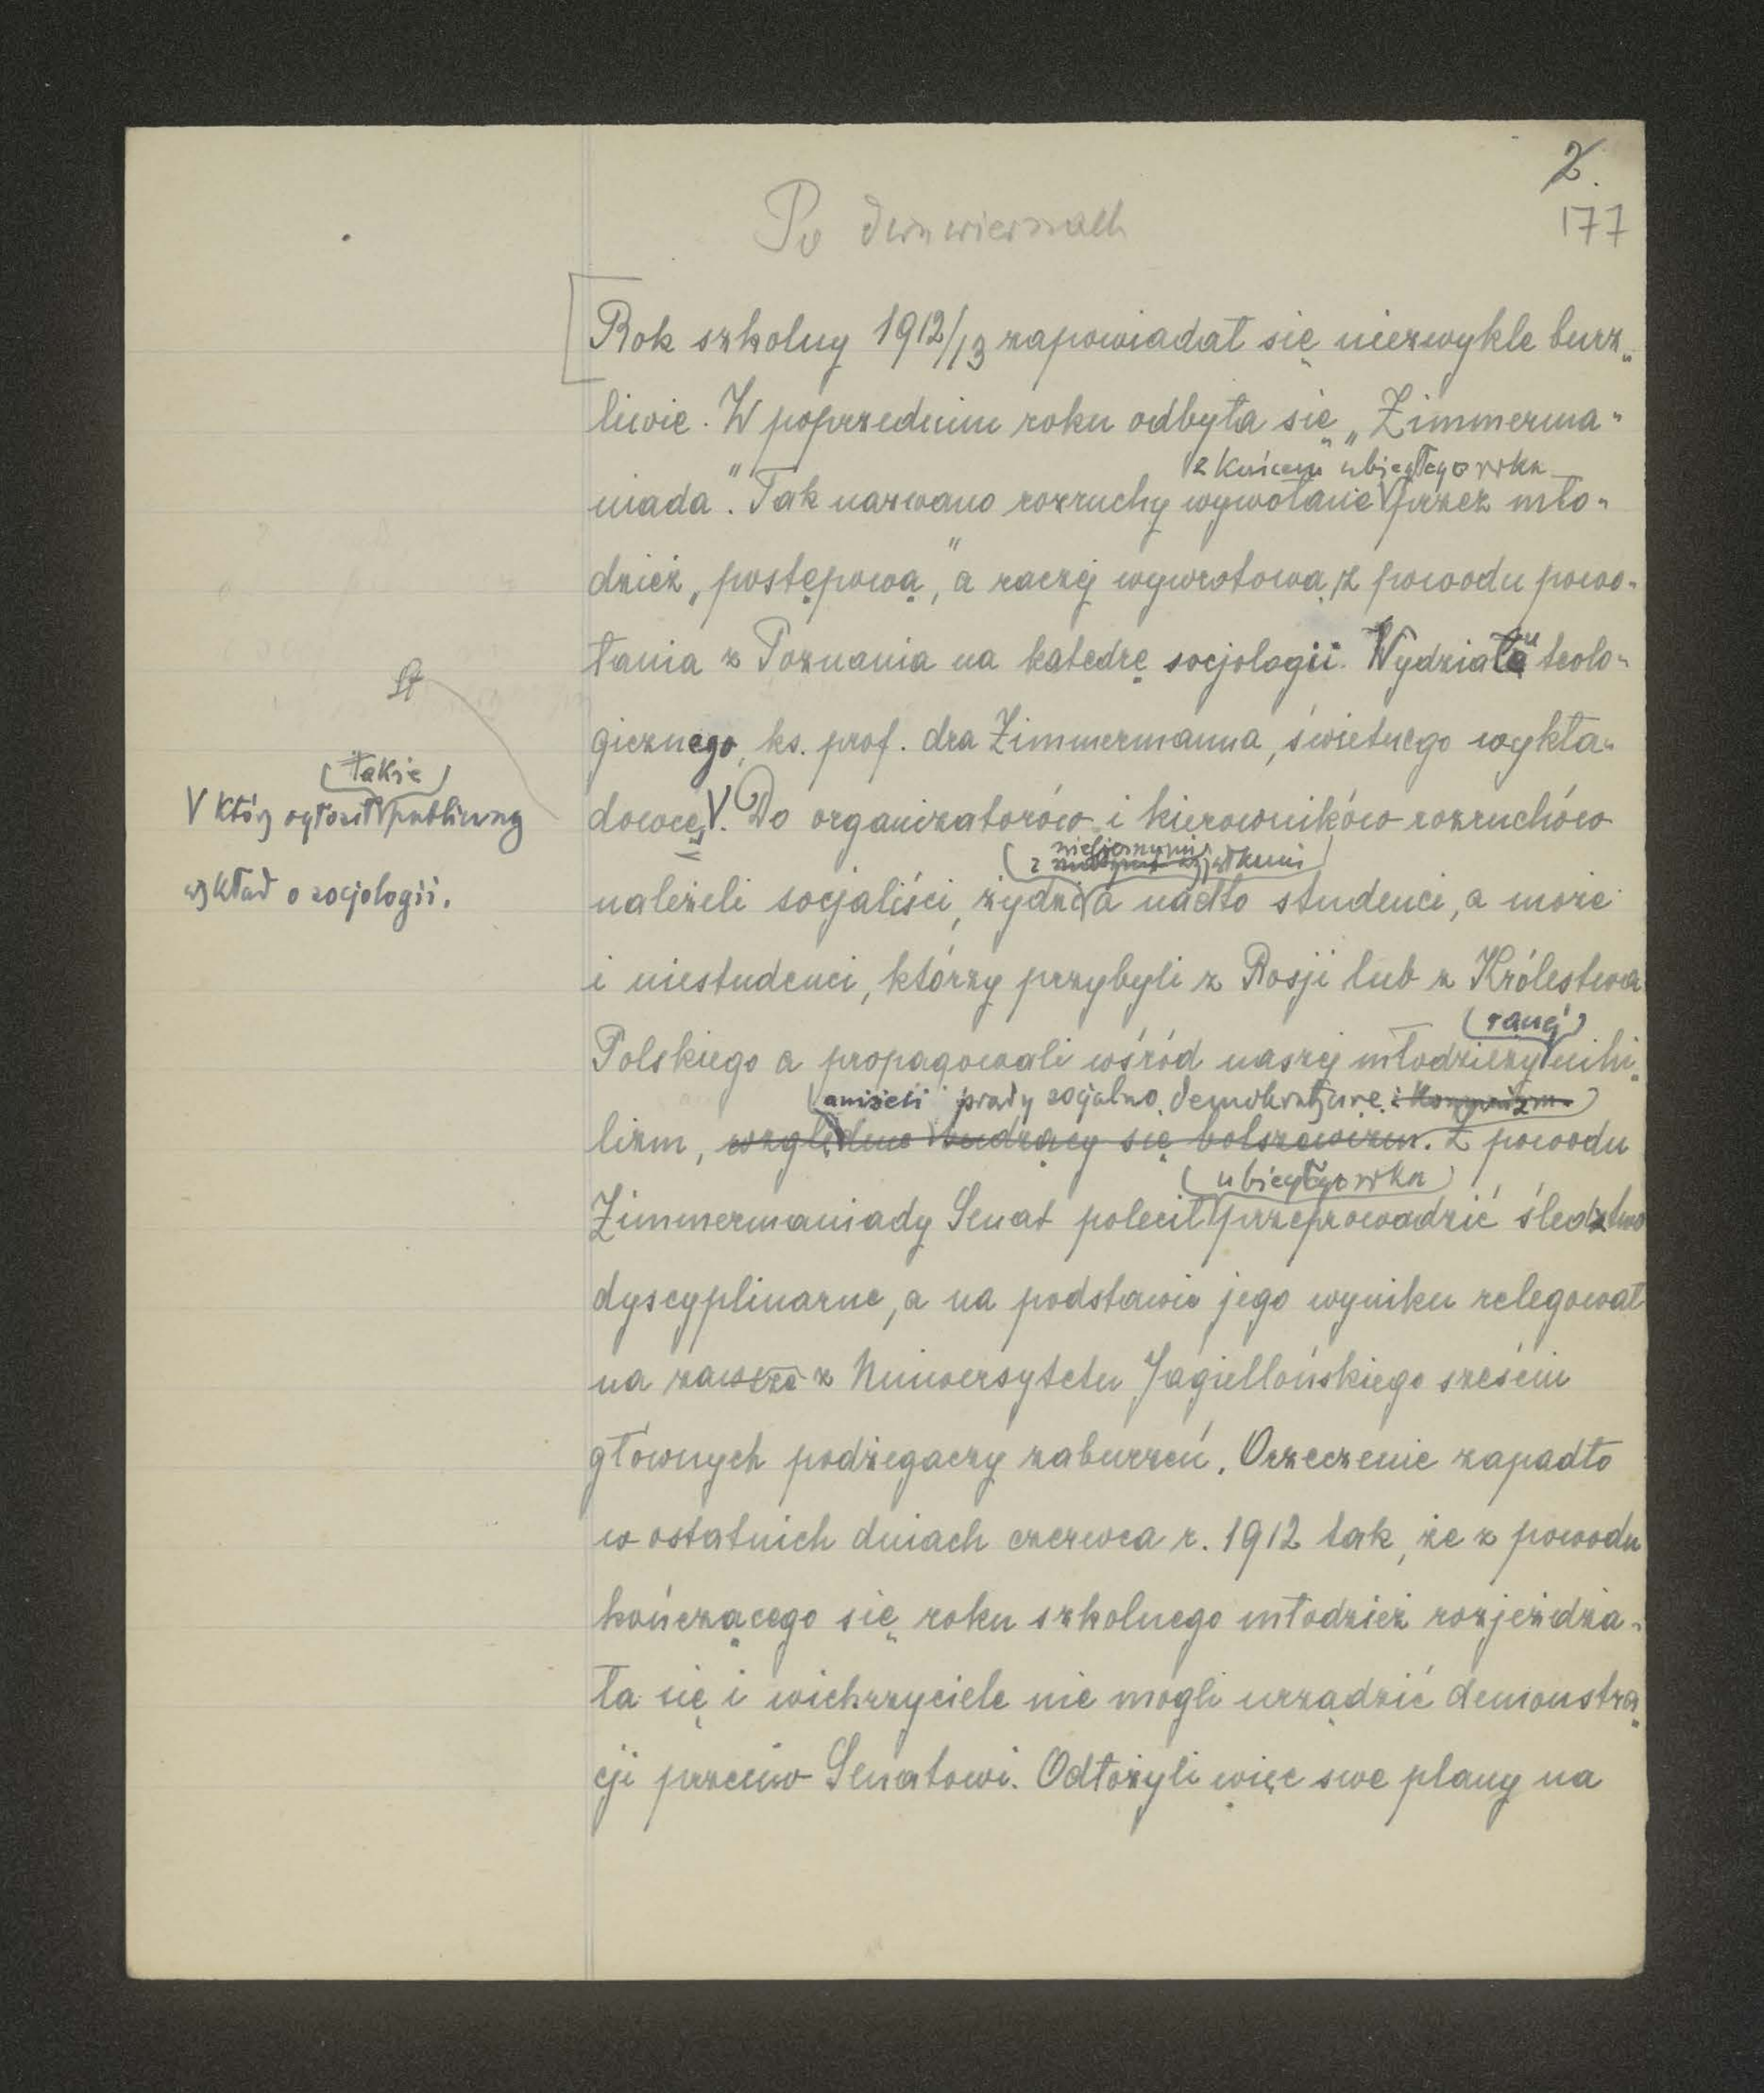 2.
177
Po dwu wierszach
Rok szkolny 1912/13 zapowiadał się niezwykle burz„
liwie. W poprzednim roku odbyła się „Zimmerma„
z końcem ubiegłego roku
niada". Tak nazwano rozruchy wywołane przez mło„
dzież „postępową", a raczej wywrotową z powodu powo„
łania z Poznania na katedrę socjologii Wydziału teolo„
gicznego, ks. prof. dra Zimmermanna, świetnego wykła„
(także)
V który ogłosił publiczny
wykład o socjologii.
dowcę V. Do organizatorów i kierowników rozruchów
(z nielicznymi wyjątkami)
należeli socjaliści, żydzi a nadto studenci, a może
i niestudenci, którzy przybyli z Rosji lub z Królestwa
(raczej)
Polskiego a propagowali wśród naszej młodzieży nihi„
(aniżeli prądy socjalno demokratyczne i komunizm)
lizm, względnie budzący się bolszewizm. Z powodu
(ubiegłego roku)
Zimmermaniady Senat polecił przeprowadzić śledztwo
dyscyplinarne, a na podstawie jego wyniku relegował
na zawsze z Uniwersytetu Jagiellońskiego sześciu
głównych podżegaczy zaburzeń. Orzeczenie zapadło
w ostatnich dniach czerwca r. 1912 tak, że z powodu
kończącego się roku szkolnego młodzież rozjeżdża„
ła się i wichrzyciele nie mogli urządzić demonstra„
cji przeciw Senatowi. Odłożyli więc swe plany na